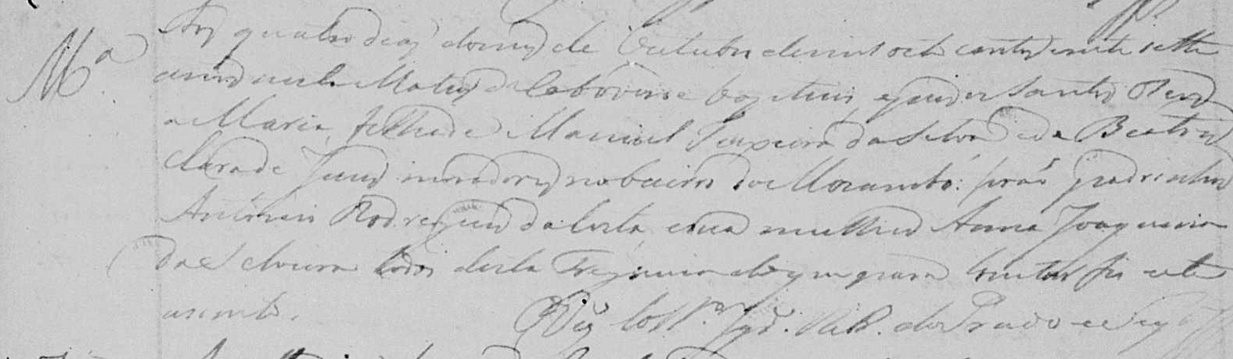 M.ª
Aos quatro dias do mes de Outubro de mil oito centos e vinte sette
annos nesta Matris de baptisei e pus os Santos Oleos
a Maria, filha de Manoel Teixeira da Silva e da Beatris
Clara de Jesus moradores no bairro do Morumbó: forão padrinhos
Antonio Rodrigues da Costa e sua mulher Anna Joaquina
da todos desta Freguezia de que para constar fis este
assento.
O Vig.º do Prado